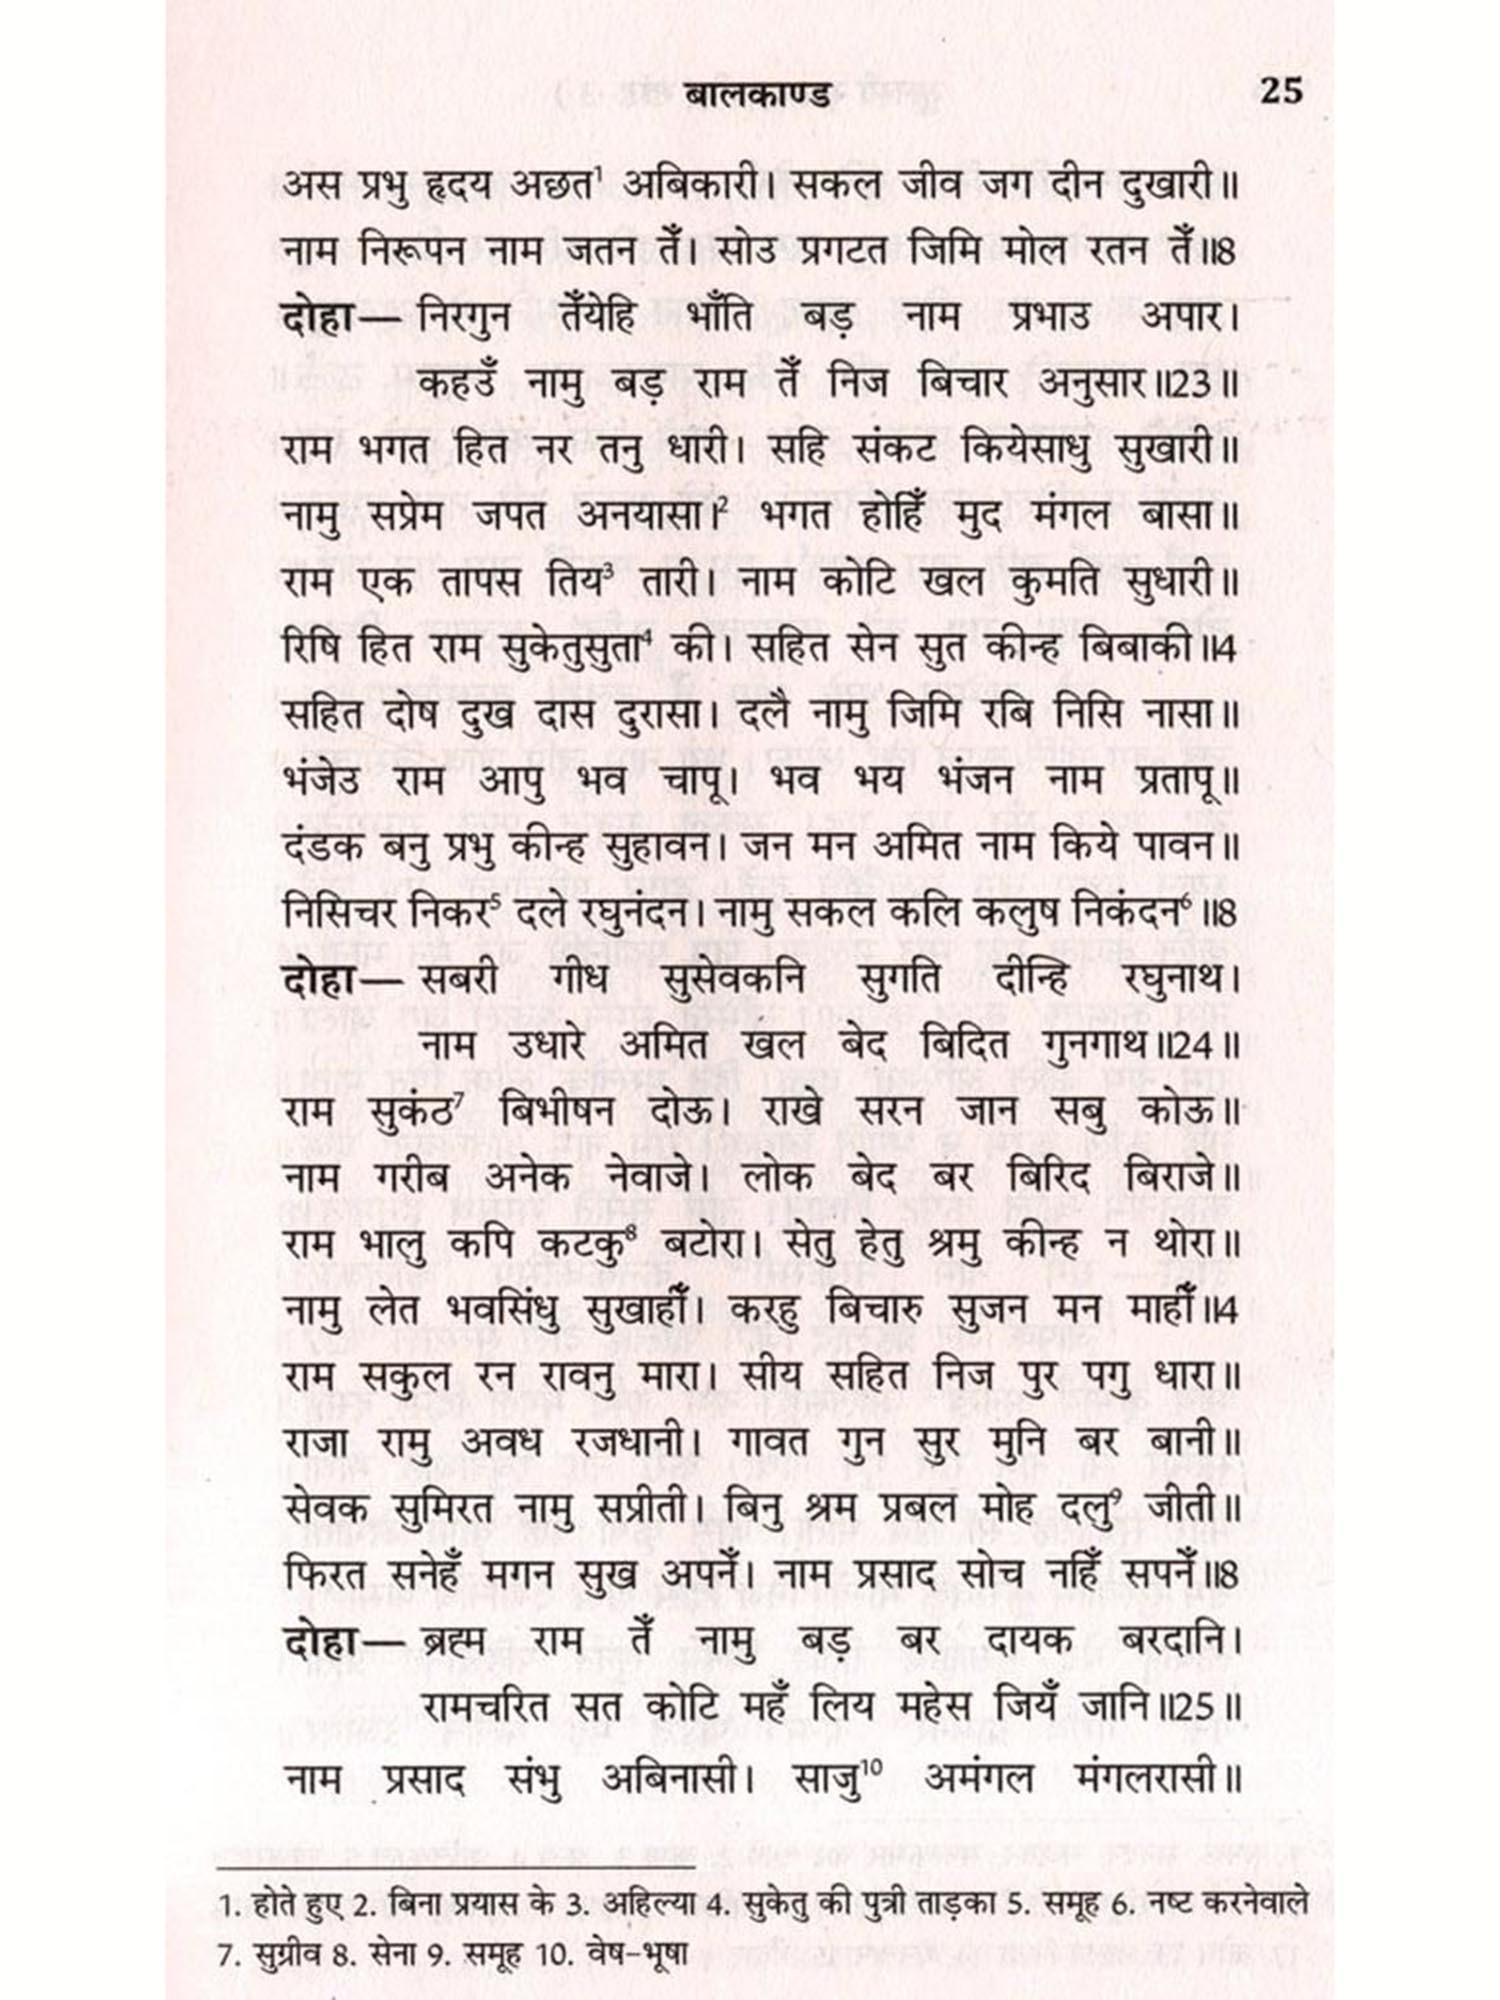 बालकाण्ड 25
अस प्रभु हृदय अछत¹ अबिकारी। सकल जीव जग दीन दुखारी॥
नाम निरूपन नाम जतन तेँ। सोउ प्रगटत जिमि मोल रतन तेँ॥8
दोहा— निरगुन तेँयेहि भाँति बड़ नाम प्रभाउ अपार।
कहउँ नामु बड़ राम तेँ निज बिचार अनुसार॥23॥
राम भगत हित नर तनु धारी। सहि संकट कियेसाधु सुखारी॥
नामु सप्रेम जपत अनयासा।² भगत होहिँ मुद मंगल बासा॥
राम एक तापस तिय³ तारी। नाम कोटि खल कुमति सुधारी॥
रिषि हित राम सुकेतुसुता⁴ की। सहित सेन सुत कीन्ह बिबाकी॥4
सहित दोष दुख दास दुरासा। दलै नामु जिमि रबि निसि नासा॥
भंजेउ राम आपु भव चापू। भव भय भंजन नाम प्रतापू॥
दंडक बनु प्रभु कीन्ह सुहावन। जन मन अमित नाम किये पावन॥
निसिचर निकर⁵ दले रघुनंदन। नामु सकल कलि कलुष निकंदन⁶॥8
दोहा— सबरी गीध सुसेवकनि सुगति दीन्हि रघुनाथ।
नाम उधारे अमित खल बेद बिदित गुनगाथ॥24॥
राम सुकंठ⁷ बिभीषन दोऊ। राखे सरन जान सबु कोऊ॥
नाम गरीब अनेक नेवाजे। लोक बेद बर बिरिद बिराजे॥
राम भालु कपि कटकु⁸ बटोरा। सेतु हेतु श्रमु कीन्ह न थोरा॥
नामु लेत भवसिंधु सुखाहीँ। करहु बिचारु सुजन मन माहीँ॥4
राम सकुल रन रावनु मारा। सीय सहित निज पुर पगु धारा॥
राजा रामु अवध रजधानी। गावत गुन सुर मुनि बर बानी॥
सेवक सुमिरत नामु सप्रीती। बिनु श्रम प्रबल मोह दलु⁹ जीती॥
फिरत सनेहँ मगन सुख अपनेँ। नाम प्रसाद सोच नहिँ सपनेँ॥8
दोहा— ब्रह्म राम तेँ नामु बड़ बर दायक बरदानि।
रामचरित सत कोटि महँ लिय महेस जियँ जानि॥25॥
नाम प्रसाद संभु अबिनासी। साजु¹⁰ अमंगल मंगलरासी॥
1. होते हुए 2. बिना प्रयास के 3. अहिल्या 4. सुकेतु की पुत्री ताड़का 5. समूह 6. नष्ट करनेवाले
7. सुग्रीव 8. सेना 9. समूह 10. वेष-भूषा